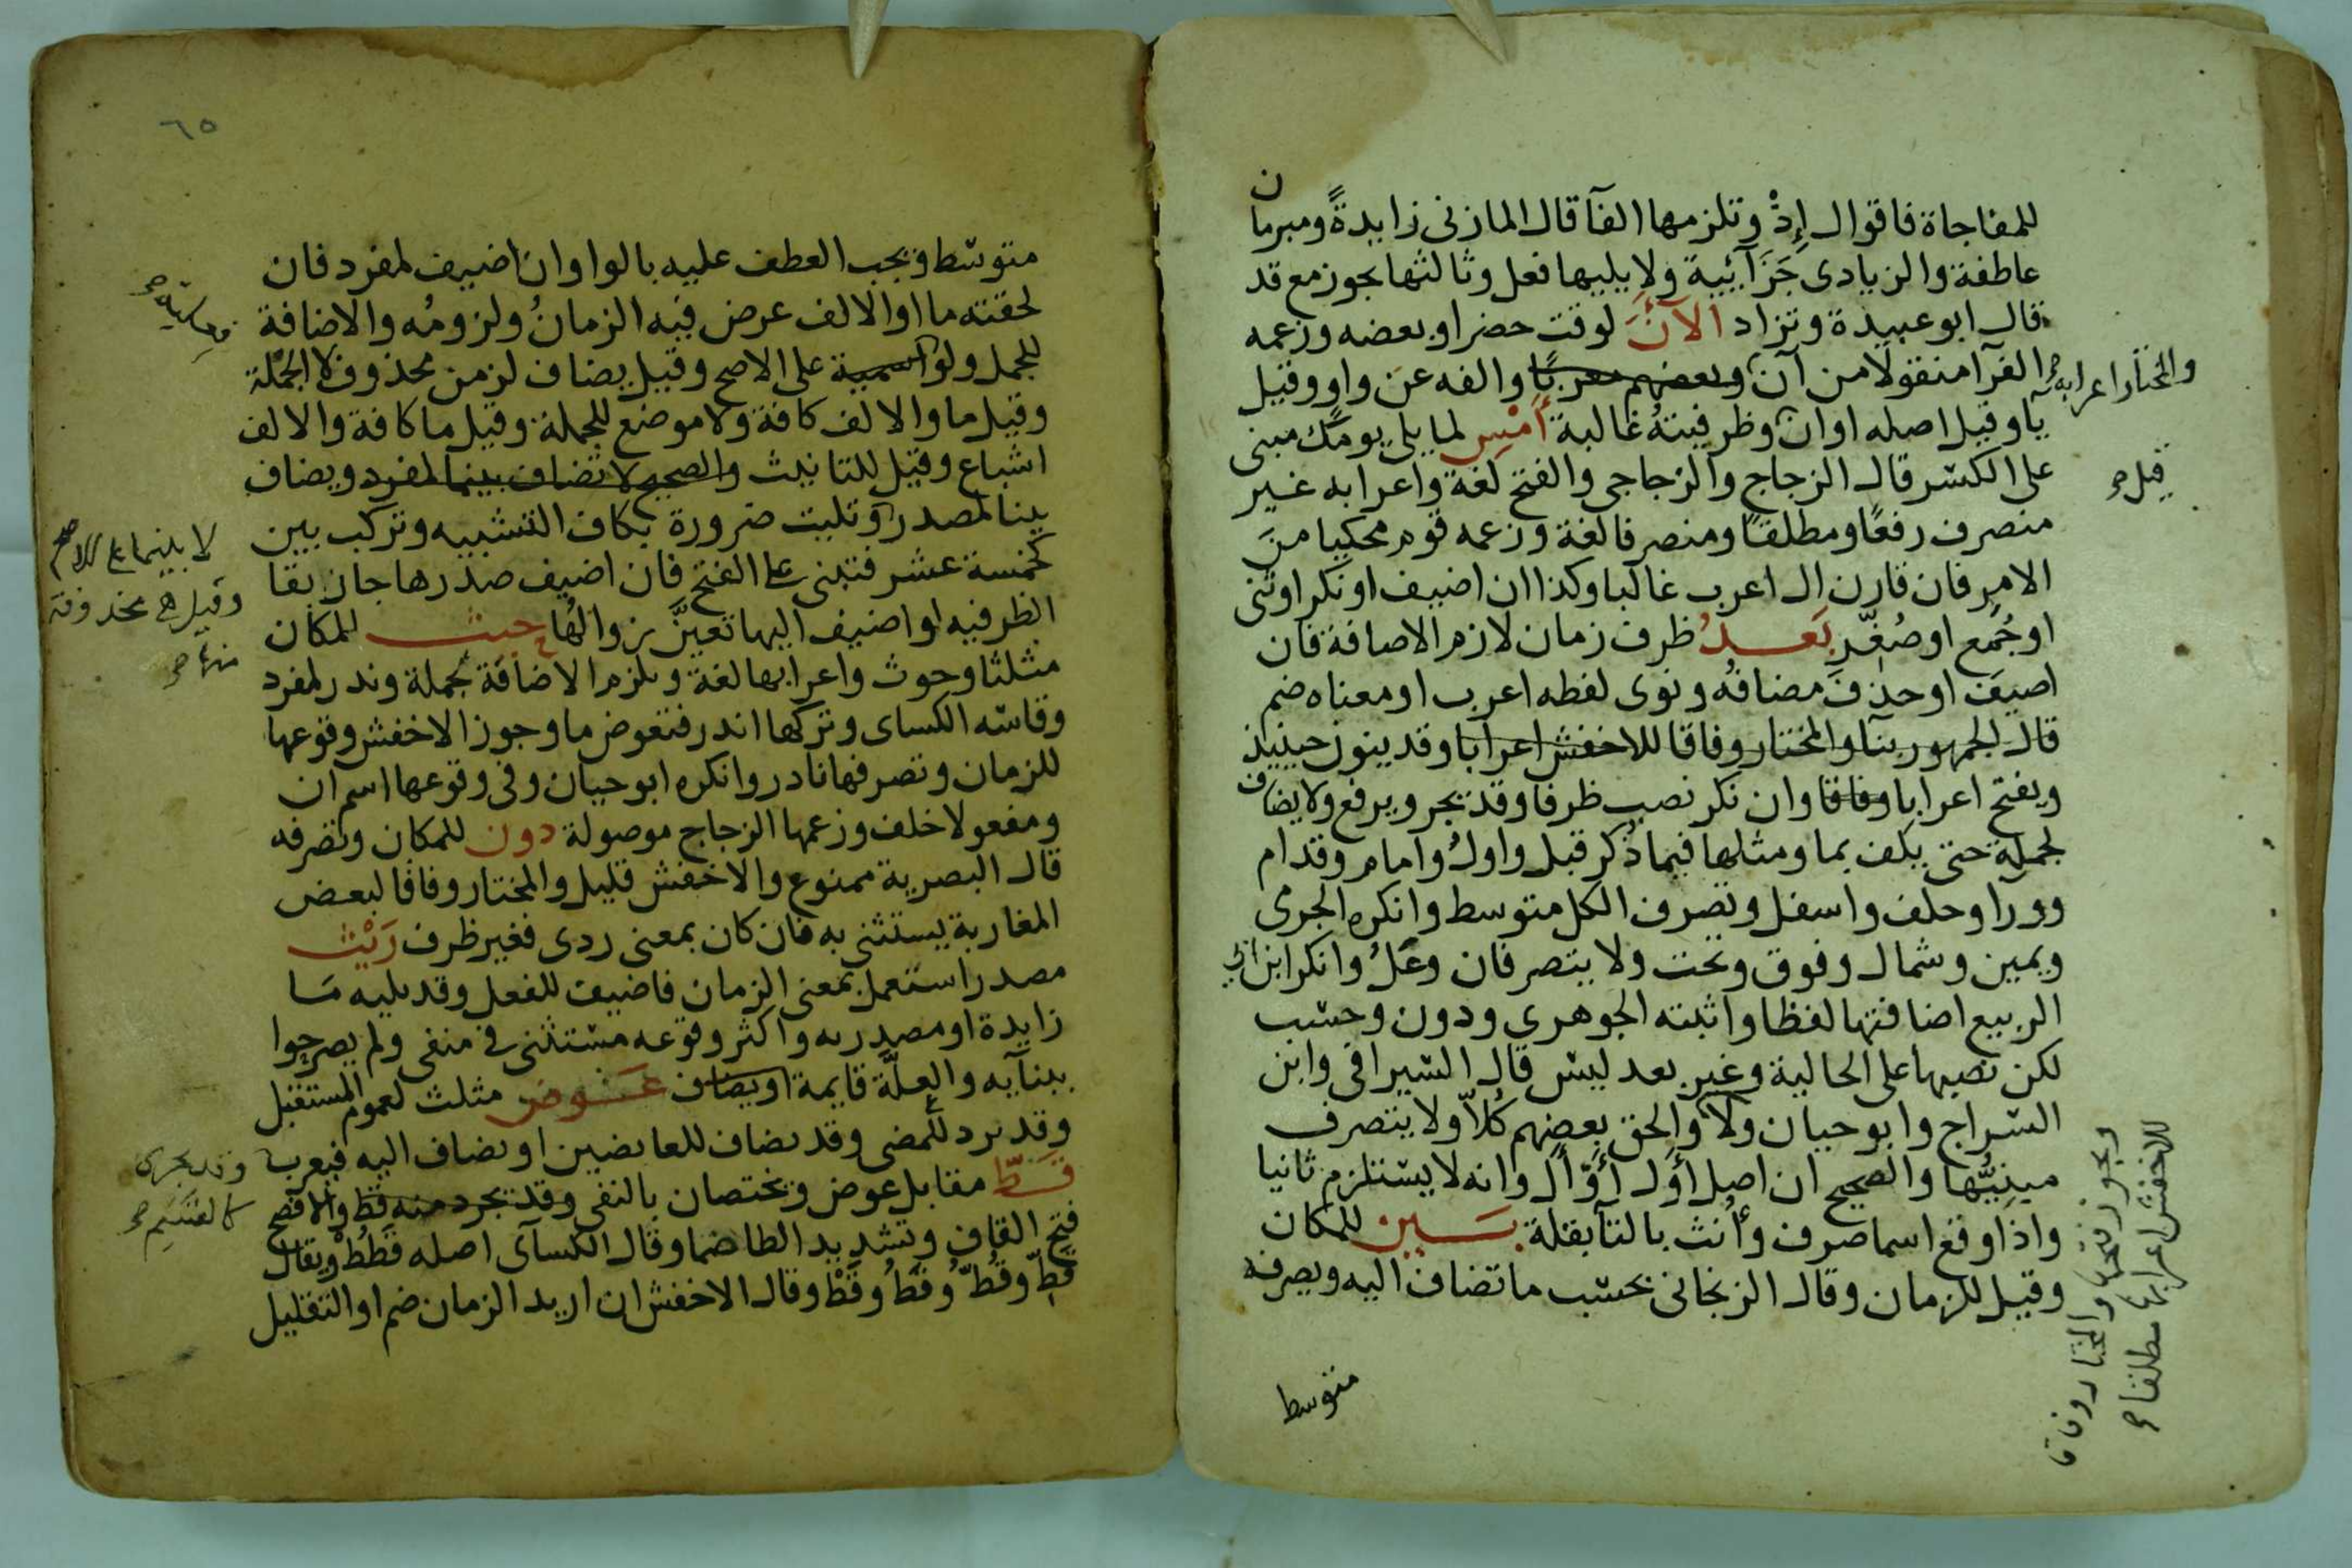 للمفاجاة فاقوال اِذْ وتلزمها الفآ قال المازنى زايدةً ومبرمان
عاطفة والزيادى جَزَآئية ولا يليها فعل وثالثها يجوز مع قد
قال ابو عبيدة وتزاد الآنَ لوقت حضر او بعضه وزعمه
الفرآ منقولا من آن وبعضهم معربًا والفه عن واو وقيل
والمختار اعرابه
يآ وقيل اصله اوان وظرفيته غالبة أَمْسِ لما يلى يومك مبنى
على الكسر قال الزجاج والزجاجى والفتح لغة واعرابه غير
قيل
منصرف رفعًا ومطلقًا ومنصرفا لغة وزعمه قوم محكيا من
الامر فان قارن ال اعرب غالبا وكذا ان اضيف او نكر او ثنى
او جُمع او صُغّر بَعدُ ظرف زمان لازم الاضافة فان
اضيف او حذف مضافه ونوى لفظه اعرب او معناه ضم
قال الجمهور بنآ والمختار وفاقا للاخفش اعرابا وقد ينون حينيذ
ويفتح اعرابا وفاقا وان نكر نصب ظرفا وقد يجر ويرفع ولا يضاف
لجملة حتى يكف بما ومثلها فيما ذكر قبل واول وامام وقدام
وورا وخلف واسفل وتصرف الكل متوسط وانكره الجرمى
ويمين وشمال وفوق وتحت ولا يتصرفان وعَلُ وانكر ابن ابى
الربيع اضافتها لفظا واثبته الجوهرى ودون وحسب
لكن نصبها على الحالية وغير بعد ليس قال السيرافى وابن
السراج وابو حيان ولا والحق بعضهم كُلاّ ولا يتصرف
مبنيّها والصحيح ان اصل أَوَّل أَوْأَل وانه لا يستلزم ثانيا
واذا وقع اسما صرف وأُنث بالتآ بقلة بَين للمكان
وقيل للزمان وقال الزنجانى بحسب ما تضاف اليه وتصرفه
ويجوز والمختار وفاقا
للاخفش اعرابها مطلقا
متوسط
٦٥
متوسط ويجب العطف عليه بالواو ان اضيف لمفرد فان
لحقته ما او الالف عرض فيه الزمانُ ولزومُه والاضافة
للجمل ولو اسمية على الاصح وقيل يضاف لزمن محذوف لا الجملة
وقيل ما والالف كافة ولا موضع للجملة وقيل ما كافة والالف
اشباع وقيل للتانيث والصحيح لا تضاف بينما لمفرد ويضاف
بينا لمصدر وتليت ضرورة بكاف التشبيه وتركب بين
لا بينما على الاصح
كخمسة عشر فتبنى على الفتح فان اضيف صدرها جاز بقا
وقيل هى محذوفة
الظرفيه او اضيف اليها تعيَّن زوالها حيث للمكان
منها
مثلثا وحوث واعرابها لغة وتلزم الاضافة لجملة وندر لمفرد
وقاسه الكساى وتركها اندر فتعوض ما وجوز الاخفش وقوعها
للزمان وتصرفها نادر وانكره ابو حيان وفى وقوعها اسم ان
ومفعولا خلف وزعمها الزجاج موصولة دون للمكان وتصرفه
قال البصرية ممنوع والاخفش قليل والمختار وفاقا لبعض
المغاربة يستثنى به فان كان بمعنى ردى فغير ظرف رَيْث
مصدر استعمل بمعنى الزمان فاضيف للفعل وقد يليه مَا
زايدة او مصدريه واكثر وقوعه مستثنى فى منفى ولم يصرحوا
ببنآيه والعلّة قايمة او يضاف عَوض مثلث لعموم المستقبل
وقد يرد للمضى وقد يضاف للعايضين او يضاف اليه فيعرب
وقد يجرى
قَطّ مقابل عوض ويختصان بالنفى وقد يجرد منه قط والافصح
كالقسم
فتح القاف وتشديد الطا ضما وقال الكسآى اصله قَطُطْ ويقال
قَطِّ وقُطُّ وقَطُ وقَطْ وقال الاخفش ان اريد الزمان ضم او التقليل